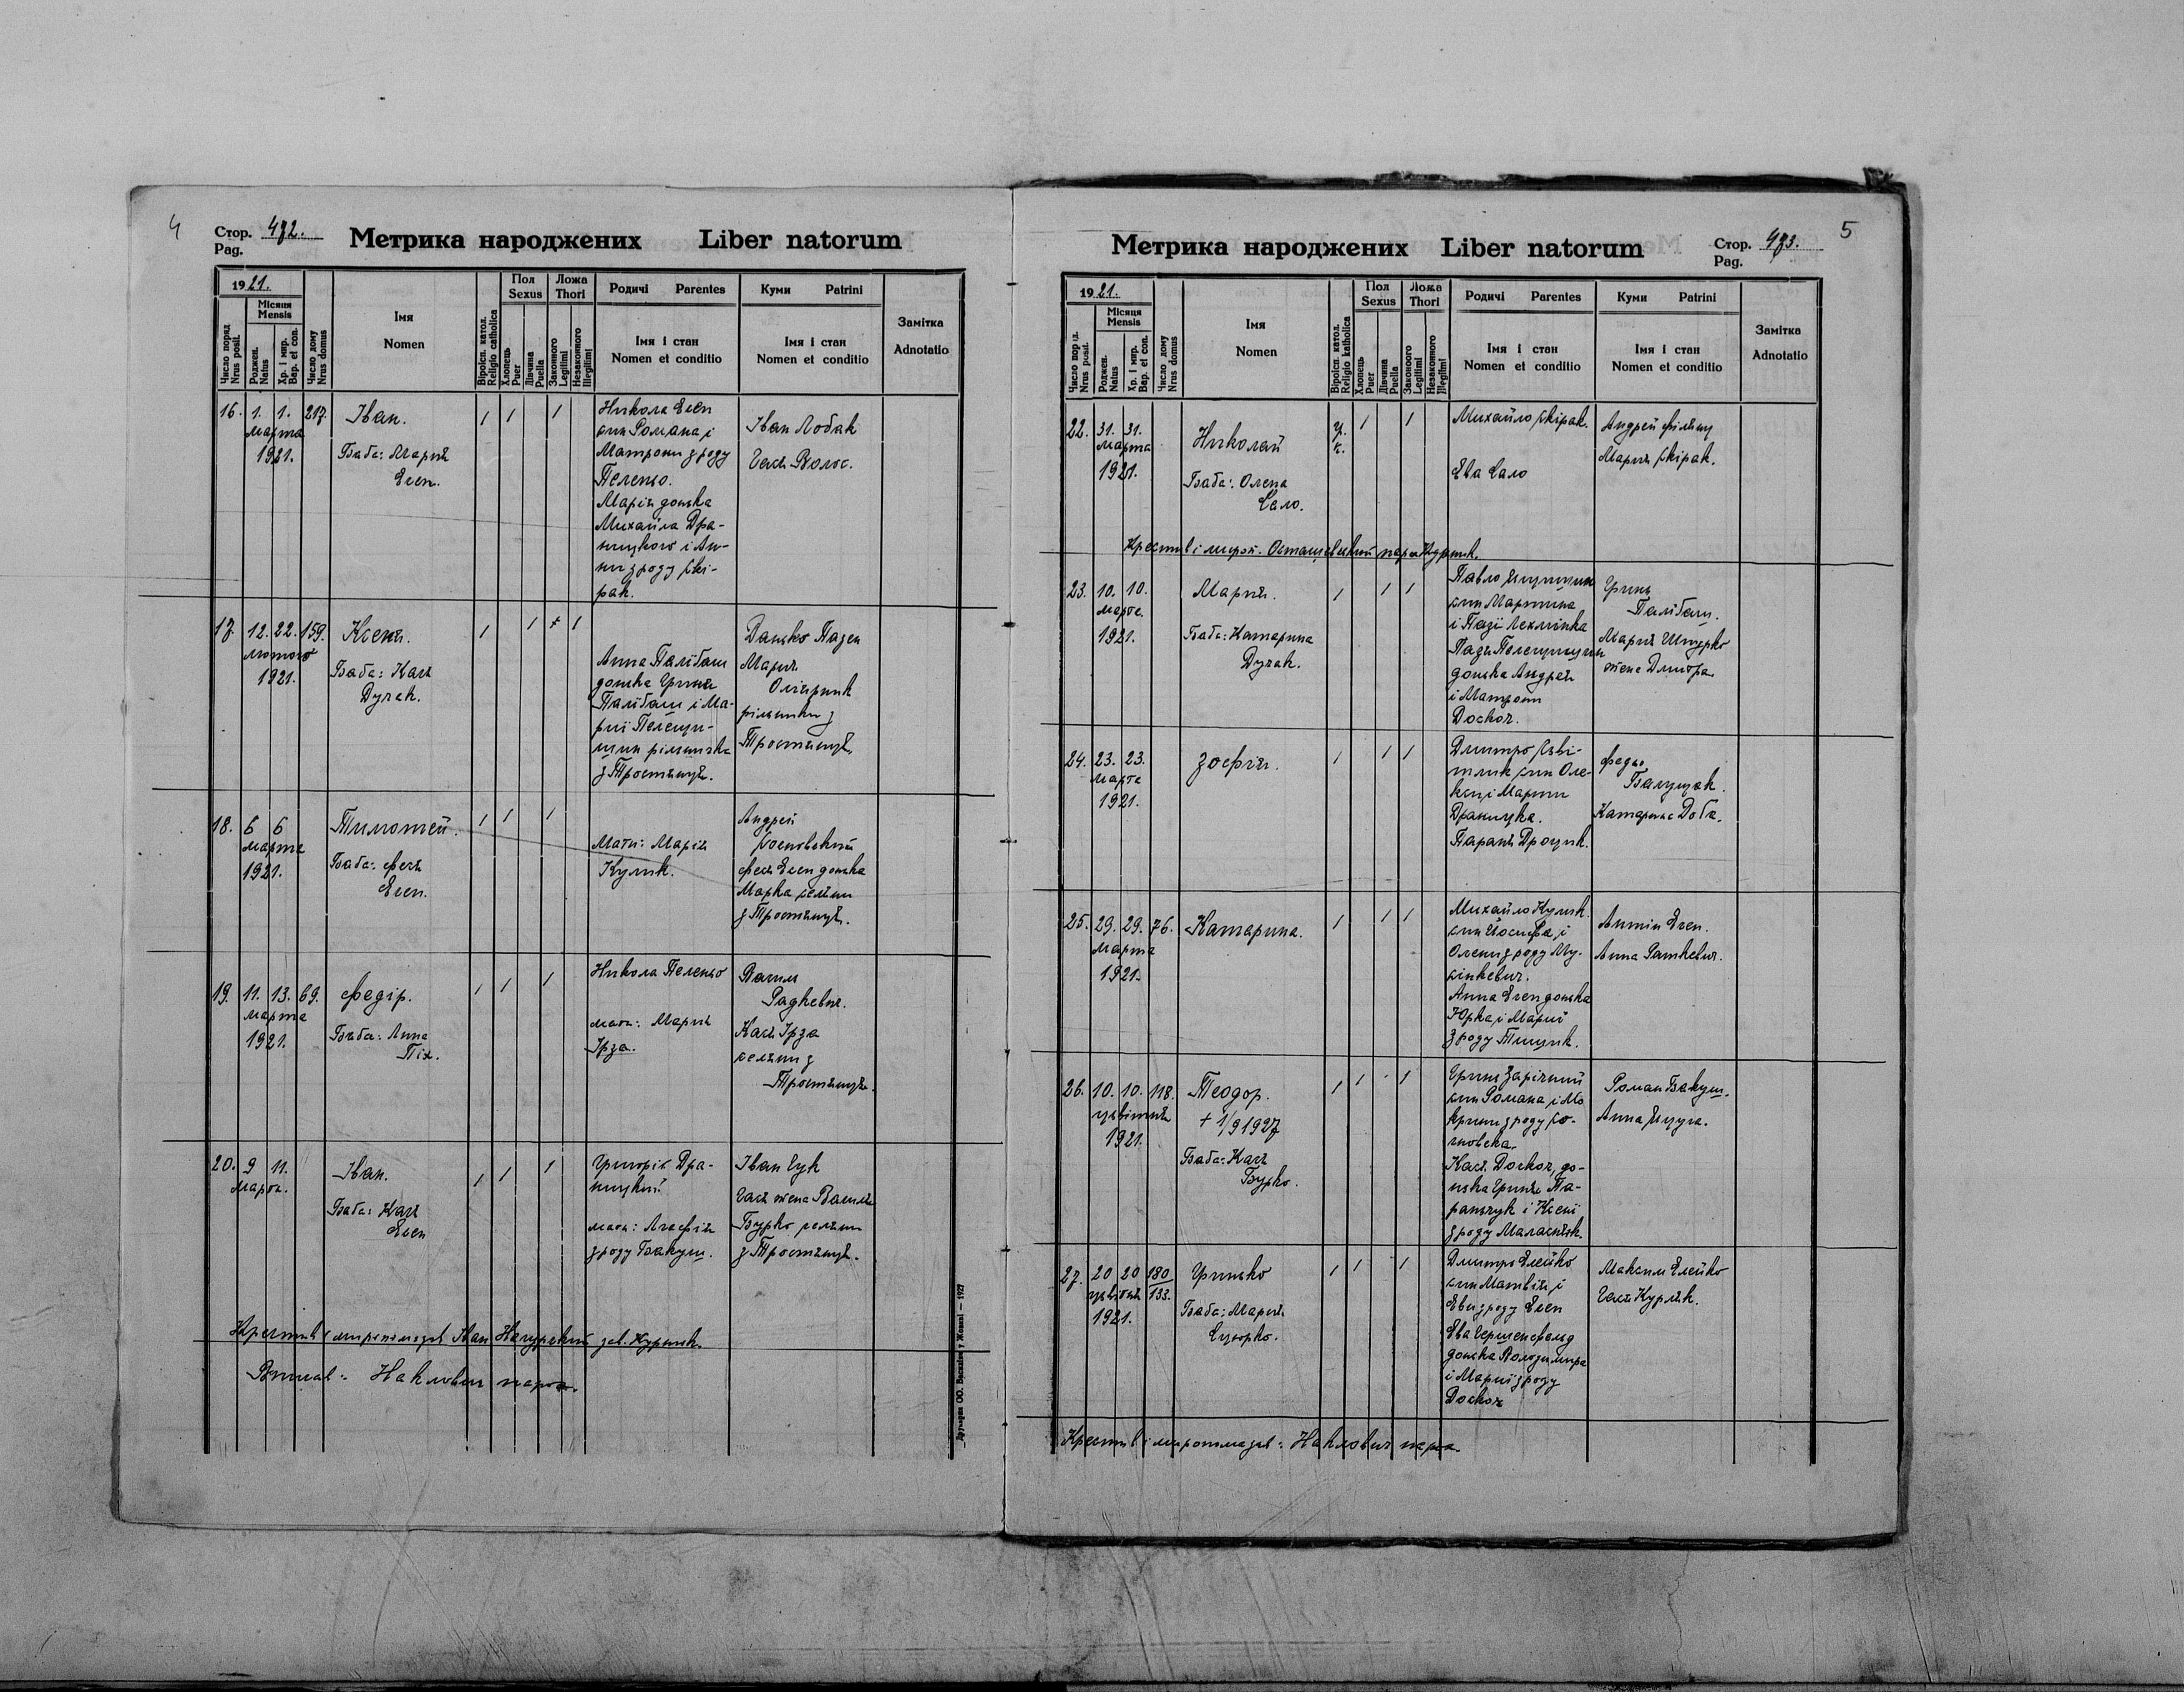 4
Стор. 472.
Pag.
Метрика народжених Liber natorum
1921.
Число поряд
Nrus posit.
Місяця
Mensis
Роджен.
Natus
Хр. і мир.
Bap. et con.
Число дому
Nrus domus
Імя
Nomen
Віроісп. катол.
Religio catholica
Пол
Sexus
Хлопець
Puer
Дівчина
Puella
Ложа
Thori
Законного
Legitimi
Незаконного
Illegitimi
Родичі Parentes
Імя і стан
Nomen et conditio
Куми Patrini
Імя і стан
Nomen et conditio
Замітка
Adnotatio
16. 1. 1. 217.
марта
1921.
Іван.
Баба: Мария
Никола
син Романа і
Матрони з роду
Пеленьо.
Марія донька
Михайла Дра-
ницкого і Ан-
ни з роду Скі-
рак.
Іван Лобак
Волос.
17. 12. 22. 159.
лютого
1921.
Ксеня.
Баба: Кася
Дучак.
1 1 + 1
Анна Палібаш
донька Гриня
Палібаш і Ма-
рії Пелещи-
шин рільничка
з Тростянця.
Данько
Мария
рільники з
Тростянця.
18. 6 6
марта
1921.
Тимотей.
Баба: Феся
Мати: Марія
Кулик.
Андрей
донька
Марка селяни
з Тростянця.
19. 11. 13. 69.
марта
1921.
Федір.
Баба: Анна
Піх.
Никола Пеленьо
мати: Мария
Ірза.
Василь
Радкевич.
Кася Ірза
селяни з
Тростянця.
20. 9 11.
марта.
Іван.
Баба: Кася
Григорій Дра-
ницкий
мати: Агафія
з роду Бакуш.
Іван Гук
жена Василя
Бурко селяни
з Тростянця.
Крестив і миропомазав Іван
Вписав: Наклович парох.
Друкарня ОО. Василіян у Жовкві — 1927
5
Метрика народжених Liber natorum
Стор. 473.
Pag.
1921.
Число пор яд.
Nrus posit.
Місяця
Mensis
Роджен.
Natus
Хр. і мир.
Bap. et con.
Число дому
Nrus domus
Імя
Nomen
Віроісп. катол.
Religio katholica
Пол
Sexus
Хлопець
Puer
Дівчина
Puella
Ложа
Thori
Законного
Legitimi
Незаконного
Illegitimi
Родичі Parentes
Імя і стан
Nomen et conditio
Куми Patrini
Імя і стан
Nomen et conditio
Замітка
Adnotatio
22. 31. 31.
марта
1921.
Николай
Баба: Олена
Сало.
гр.
к.
Михайло Скірак.
Ева Сало
Андрей
Мария Скірак.
Крестив і мироп. Осташевский парох
23. 10. 10.
марта.
1921.
Мария.
Баба: Катарина
Дучак.
Павло
син Мартина
і Пазі
Пазя Пелещишин
донька Андрея
і Матрони
Доскоч.
Гринь
Палібаш.
Мария Штурко
жена Дмитра.
24. 23. 23.
марта
1921.
Зофія.
Дмитро Сьві-
тлик син Оле-
кси і Марти
Драницка.
Параня Дроцик.
Федьо
Балущак.
Катарина Доба.
25. 29. 29. 76.
марта
1921.
Катарина.
Михайло Кулик
син Йосифа і
Олени з роду Му-
сінкевич.
Анна донька
Юрка і Марії
з роду Тищик.
Антін
Анна Раткевич.
26. 10. 10. 118.
цьвітня
1921.
Теодор.
+ 1/9 1927
Баба: Кася
Бурко.
Гринь Зарічний
син Романа і Мо
крини з роду Со-
Кася Доскоч, до-
нька Гриня Па-
ранчук і Ксені
з роду Маласняк.
Роман Бакуш.
Анна Яцура.
27. 20 20 180/133.
цьвітня
1921.
Гринько
Баба: Мария
Сцюрко.
Дмитро Елейко
син Матвія і
Еви з роду
Ева Гершенфельд
донька Володимира
і Марії з роду
Доскоч
Максим Елейко
Кург̌як.
Крестив і миропомазав: Наклович парох.